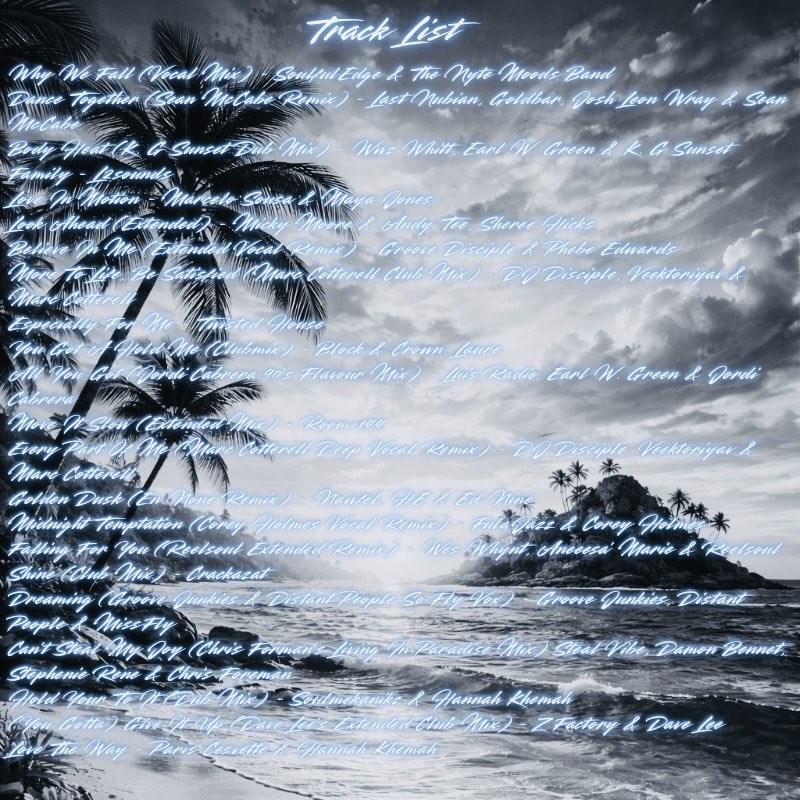 Track List
Why We Fall (Vocal Mix) - SoulfulEdge & The Nyte Moods Band
Dance Together (Sean McCabe Remix) - Last Nubian, Goldbar, Josh Leon Wray & Sean
McCabe
Body Heat (K. G Sunset Dub Mix) - Wuz Whitt, Earl W. Green & K. G Sunset
Family - Lasounds
Love In Motion - Marcelo Sousa & Maya Jones
Look Ahead (Extended) - Micky Moore & Andy Tee, Sheree Hicks
Believe In Me (Extended Vocal Remix) - Groove Disciple & Phebe Edwards
More To Life, Be Satisfied (Marc Cotterell Club Mix) - DJ Disciple, Veektoriyav &
Marc Cotterell
Especially For Me - Twisted House
You Got A Hold Me (Clubmix) - Block & Crown, Laure
All You Got (Jordi Cabrera 90's Flavour Mix) - Luis Radio, Earl W. Green & Jordi
Cabrera
Move It Slow (Extended Mix) - Room 144
Every Part Of Me (Marc Cotterell Deep Vocal Remix) - DJ Disciple, Veektoriyav &
Marc Cotterell
Golden Dusk (En None Remix) - HE & Ed Nine
Midnight Temptation (Corey Holmes Vocal Remix) - FulaJazz & Corey Holmes
Falling For You (Reelsoul Extended Remix) - Wes Whynt, Aneeesa' Marie & Reelsoul
Shine (Club Mix) - Crackazat
Dreaming (Groove Junkies & Distant People So Fly Vox) - Groove Junkies, Distant
People & MissFly
Can't Steal My Joy (Chris Forman's Living In Paradise Mix) Steal Vibe, Damon Bennet,
Stephenie Rene & Chris Foreman
Hold Your To It (Dub Mix) - Soulmekanikz & Hannah Khemoh
(You Gotta) Give It Up (Dave Lee's Extended Club Mix) - Z Factory & Dave Lee
Love The Way - Paris Cesvette & Hannah Khemoh